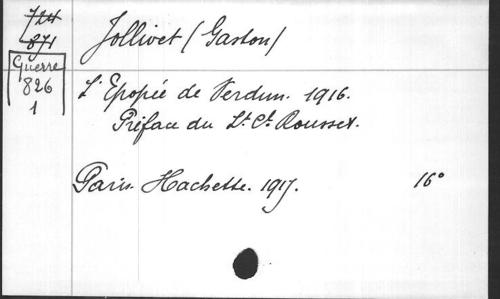 714
871
Guerre
826
1
Jollivet (Gaston)
L'Epopée de Verdun. 1916.
Préface du Lt. Ct. Rousset.
Paris. Hachette. 1917. 16°